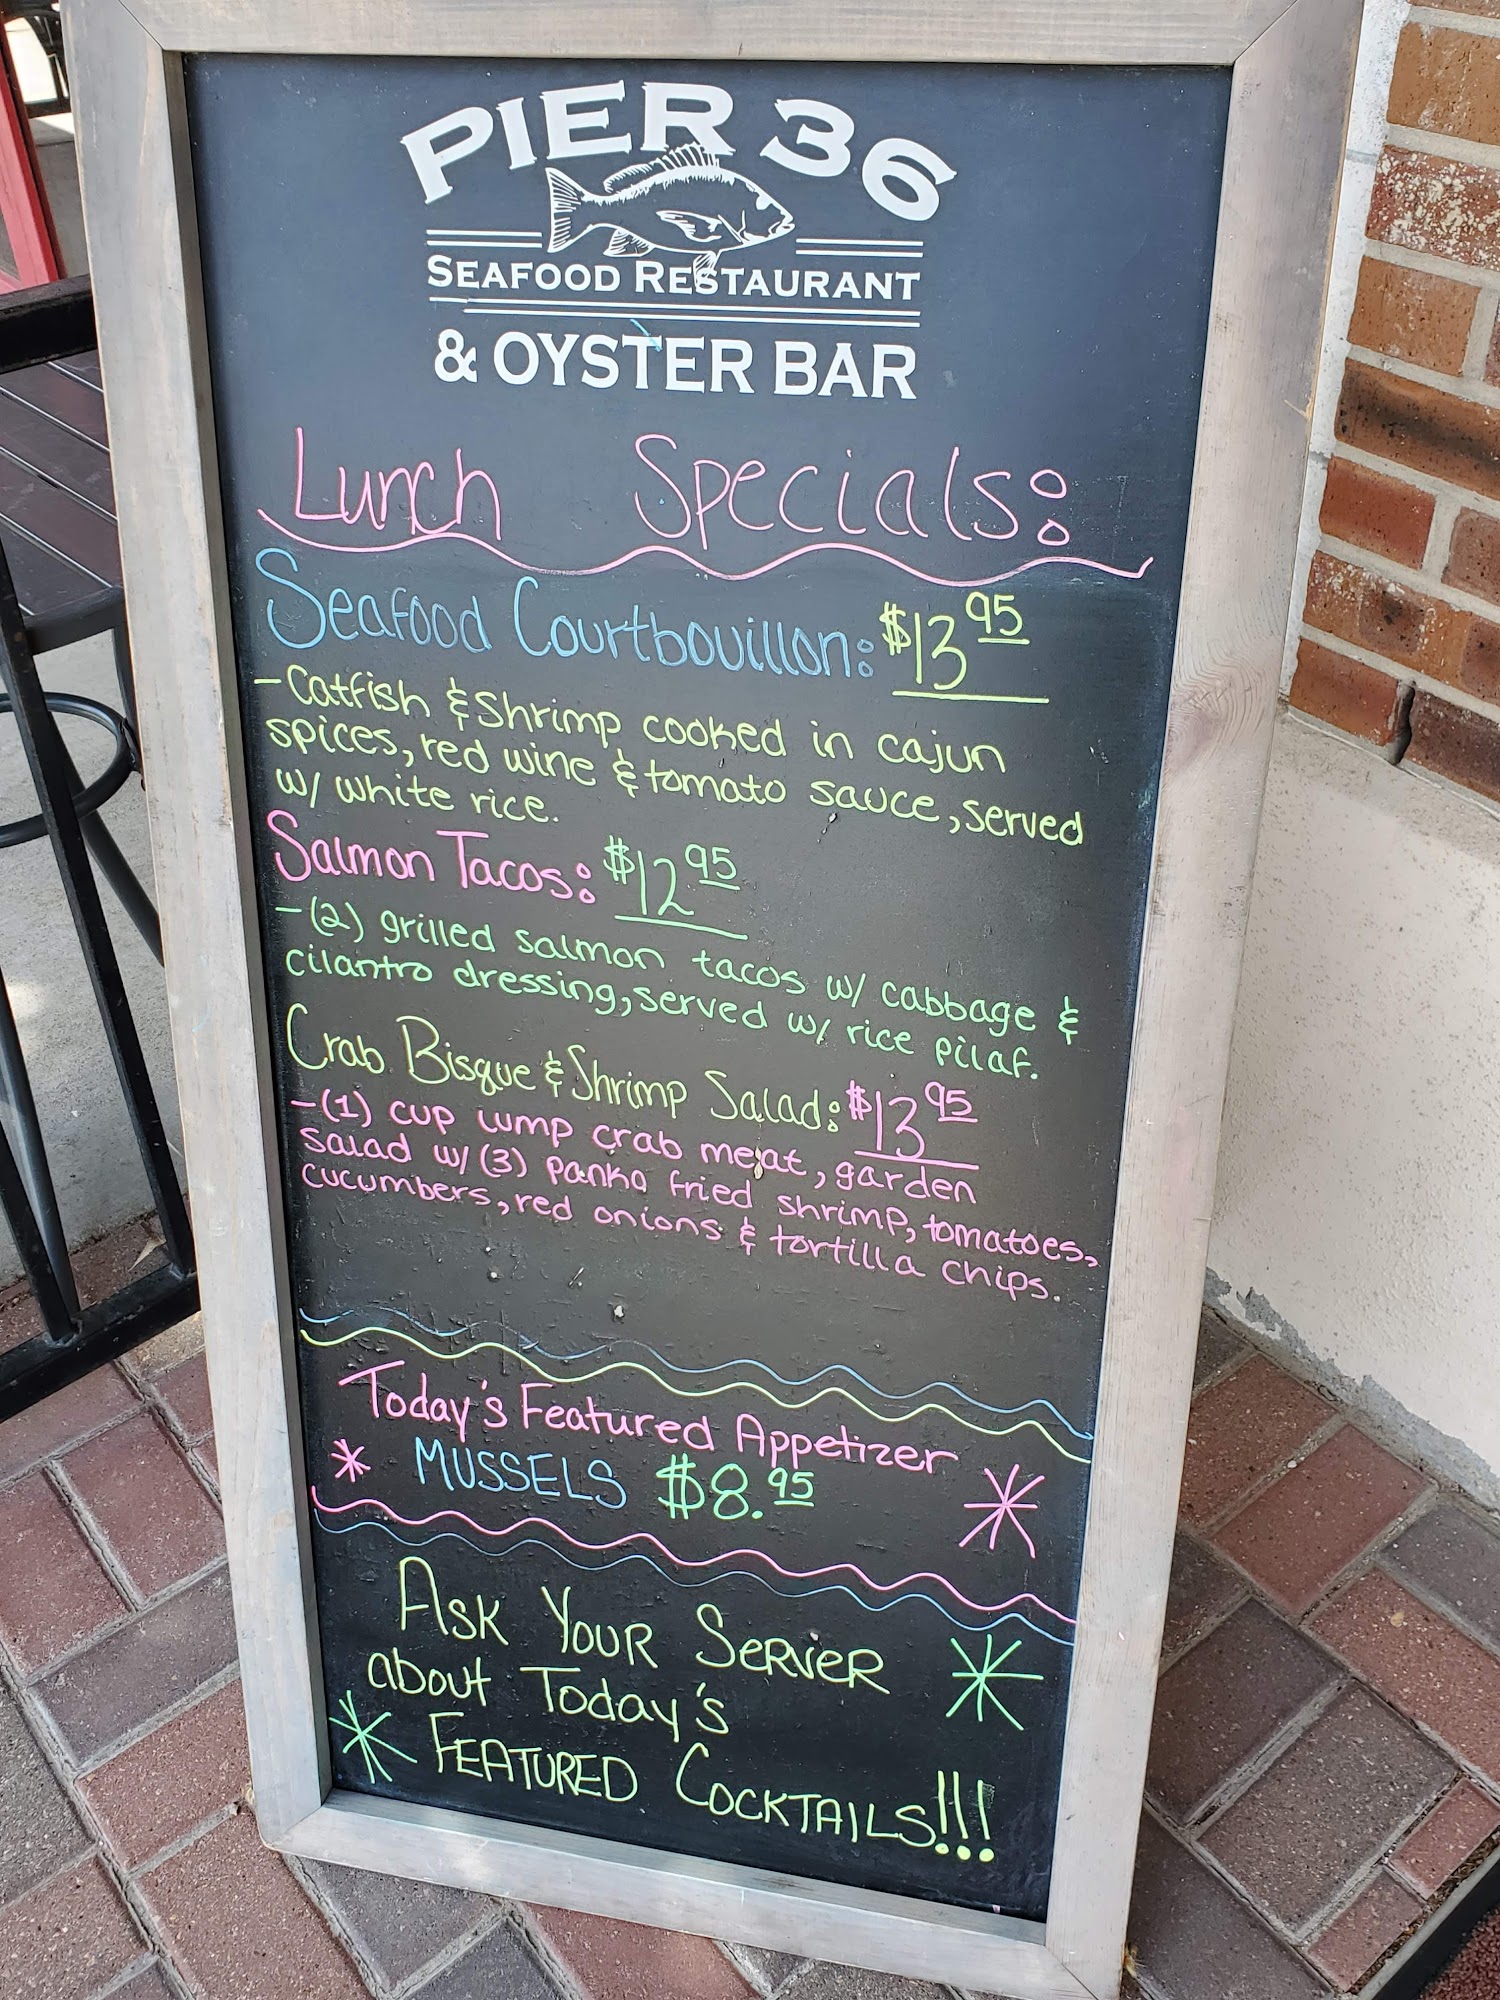 PIER 36
SEAFOOD RESTAURANT
& OYSTER BAR
Lunch Specials:
Seafood Courtbouillon: $13 95
- Catfish & Shrimp cooked in cajun
spices, red wine & tomato sauce, served
w/ white rice.
Salmon Tacos: $12 95
- (2) grilled salmon tacos w/ cabbage &
cilantro dressing, served w/ rice pilaf.
Crab Bisque & Shrimp Salad: $13 95
- (1) cup lump crab meat, garden
salad w/ (3) panko fried shrimp, tomatoes,
cucumbers, red onions & tortilla chips.
Today's Featured Appetizer
MUSSELS $8.95
ASK YOUR SERVER
about Today's
FEATURED COCKTAILS!!!